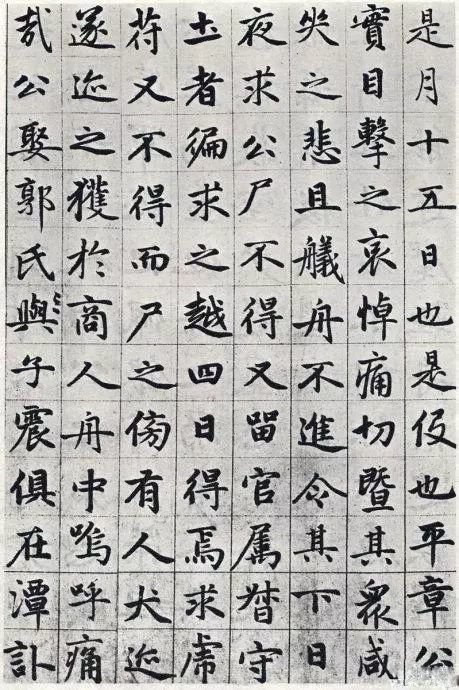 是月十五日也是伇也平章公
實目擊之哀悼痛切暨其衆咸
失之悲且艤舟不進令其下日
夜求公尸不得又留官属督守
土者徧求之越四日得焉求虎
苻又不得而尸之傍有人犬迹
遂迹之獲於商人舟中嗚呼痛
哉公娶郭氏與子震俱在潭訃